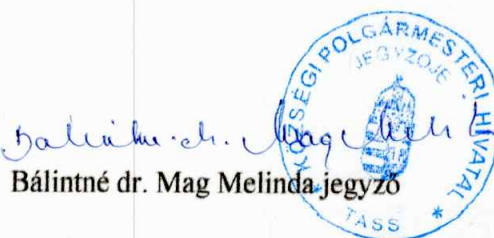 KÖZSÉGI POLGÁRMESTERI HIVATAL
JEGYZŐJE
Bálintné dr. Mag Melinda
Bálintné dr. Mag Melinda jegyző
* TASS *